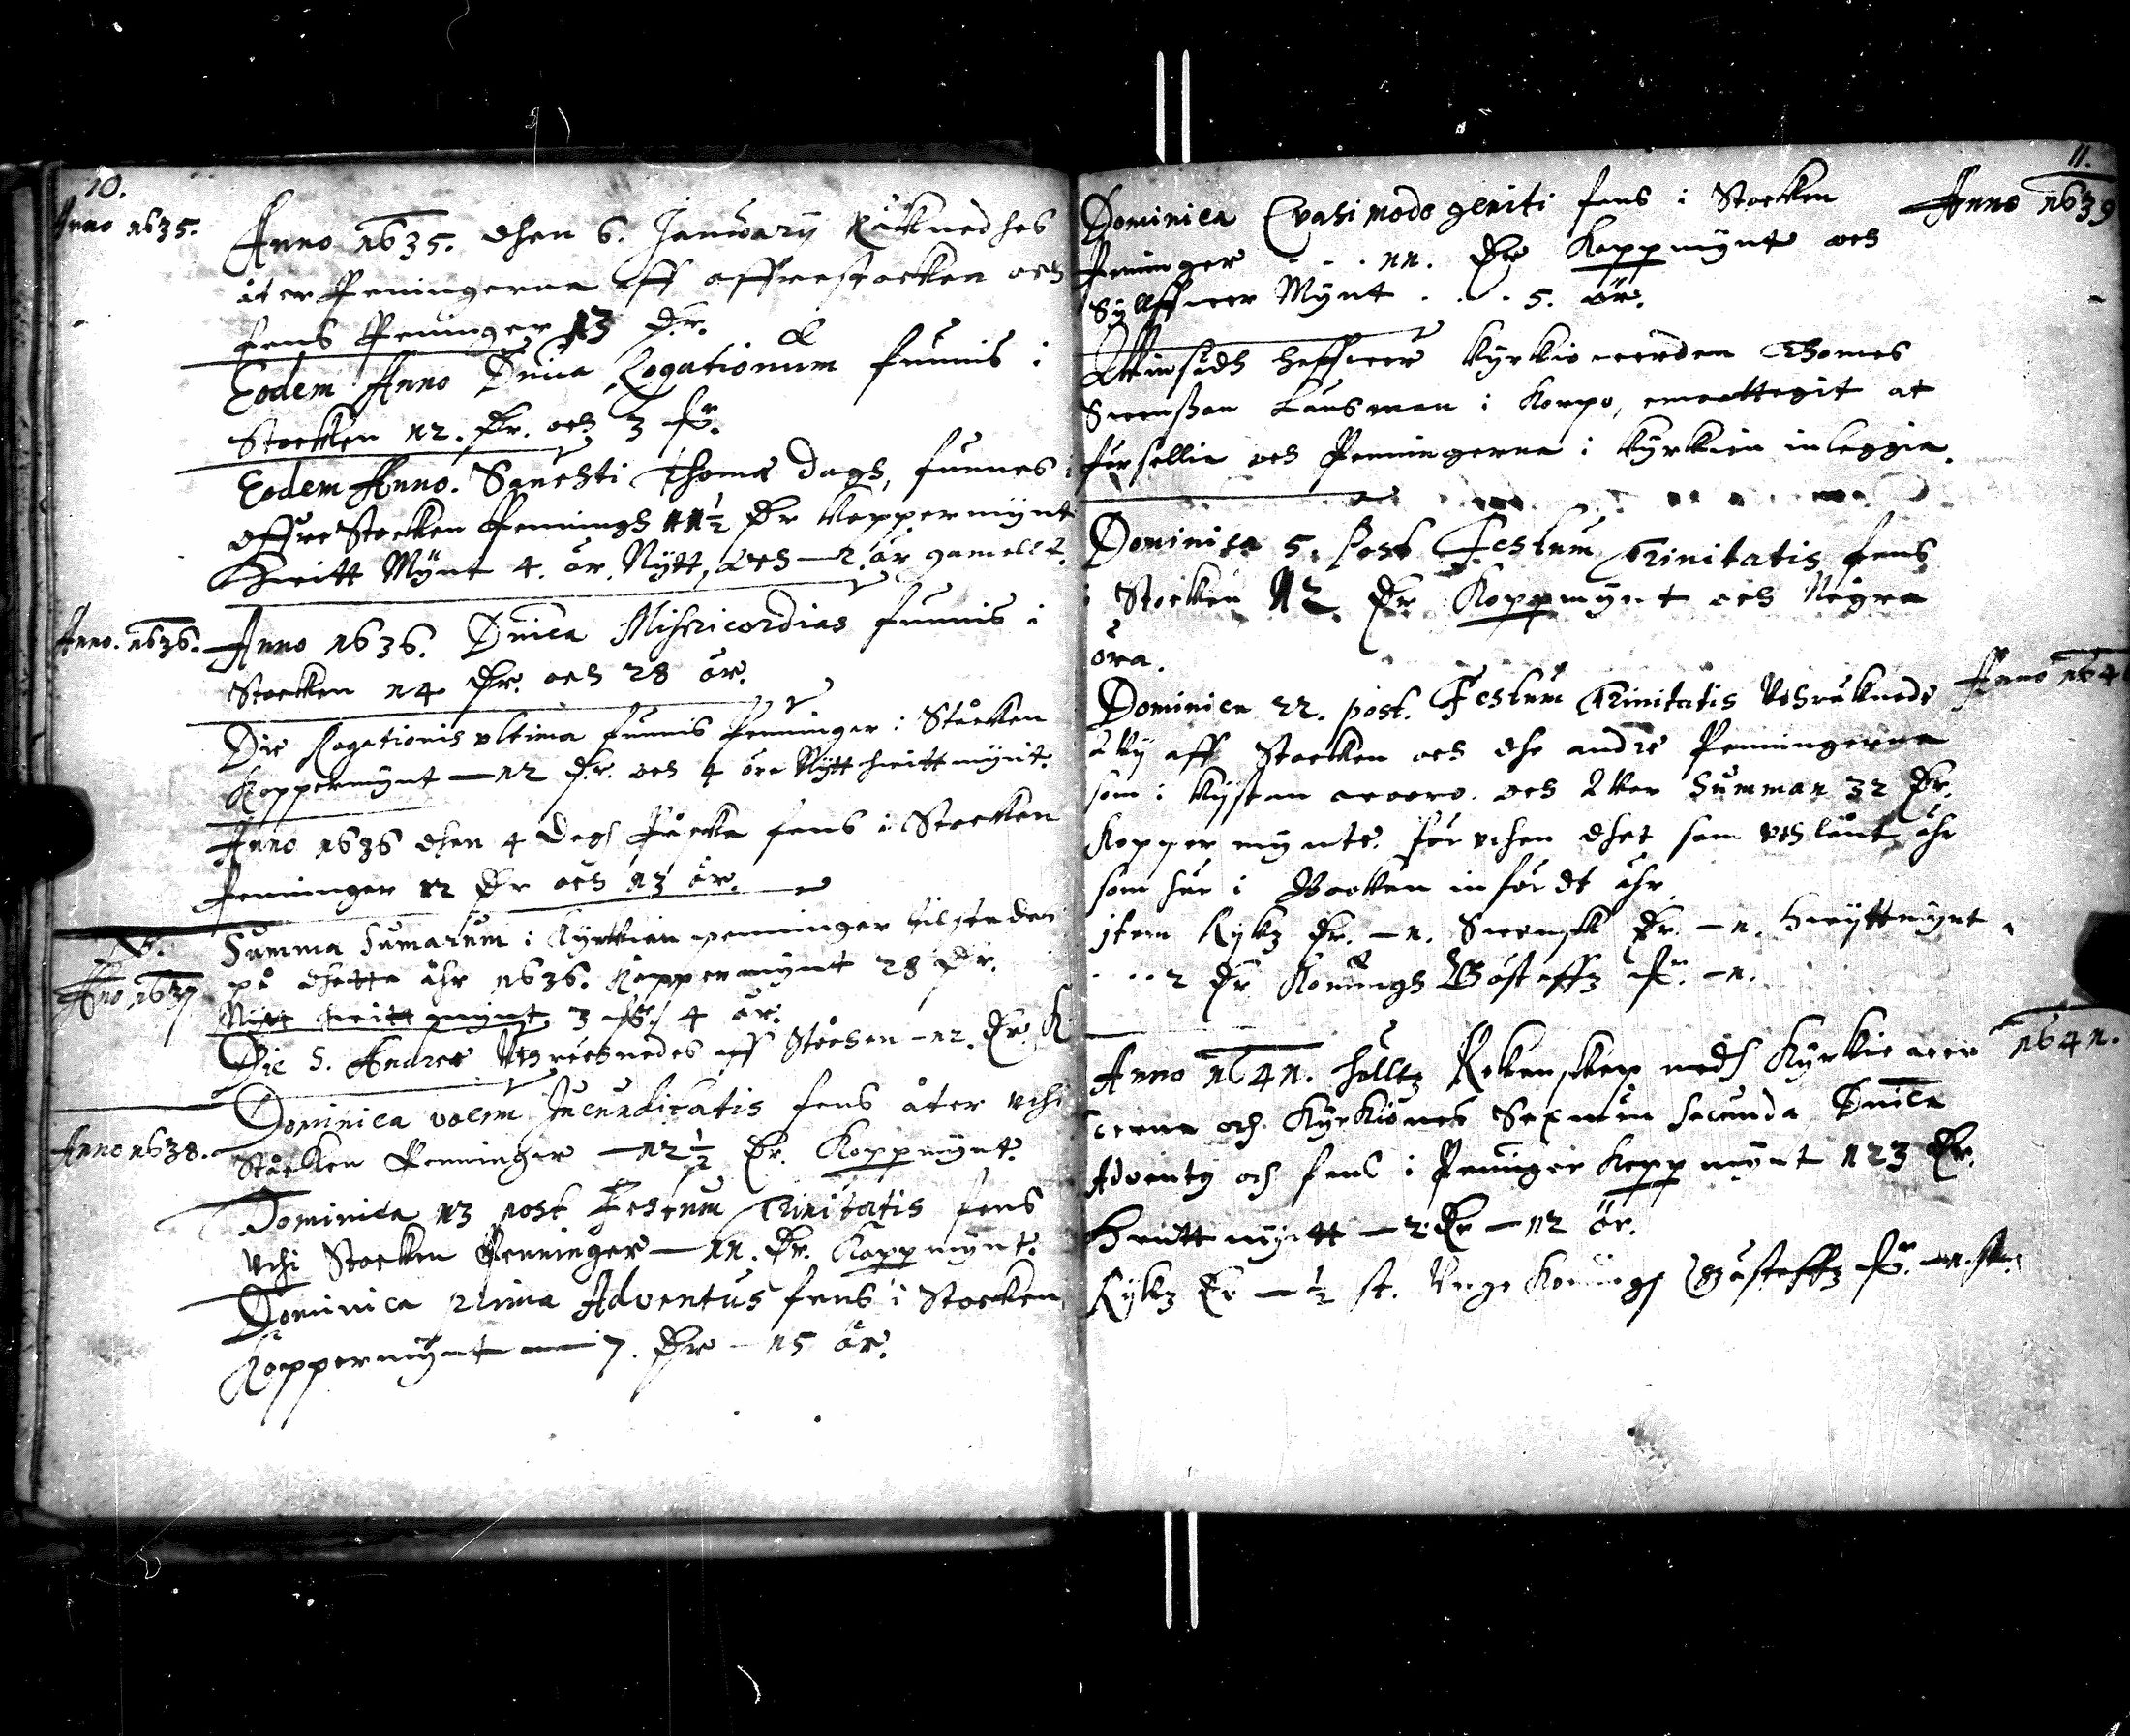 10.
Anno 1635.
Anno 1635. dhen 6. Januarij Räknedhes
åter Peningerna aff offrestocken och
fans Peninger 13 Dr.
Eodem Anno Dnica Rogationum funnis i
Stocken 12. Dr. och 3 
Eodem Anno. Sanchti Thomæ dagh, funnes i
offre Stocken Penningh 11½ Dr Koppermynt
Hvitt Mynt 4. ör. Nytt, och - 2. ör gamellt.
Anno. 1636.
Anno 1636. Dnica Misericordias funnis i
Stocken 14 Dr. och 28 ör.
Die Rogationis ultima funnis Penninger i Stocken
Koppermynt - 12 Dr. och 4 öre Nytt hvitt mynt.
Anno 1636 dhen 4 dagh Påska fans i Stocken
Penninger 12 Dr och 13 ör.
Summa Sumarum i Kyrkian penninger tilstædes
på dhetta åhr 1636. Koppermynt 28 Dr.
Nitt hvitt mynt 3 4 ör.
Anno 1637
Die S. Andreæ Uthräcknedes aff Stocken - 12. Dr. K.
Dominica vocem Jucundicatis fans åter uthi
Anno 1638.
Stocken Penninger - 12½ Dr. Koppmynt.
Dominica 13 post Festum Trinitatis fans
Uthi Stocken Penninger - 11. Dr. Koppmynt.
Dominica prima Adventus fans i Stocken
Koppermynt - 7. Dr - 15 ör.
11.
Anno 1639
Dominica Qvasimodo geniti fans i Stocken
Peninger - - - 11. Dr Koppmynt och
Sylffver Mynt . . . 5. ör.
heffver Kyrkio verden Thomes
Svensson Lansman i Korpo, emoottagit at
försellia och Penningerna i Kyrkian inleggia.
Dominica 5. post Festum Trinitatis fans
i Stocken 12. Dr Koppmynt och Några
öra.
Anno 164
Dominica 22. post. Festum Trinitatis Uthräknede
aff Stocken och dhe andre Penningerna
som i Kystan och Summan 32 Dr.
Kopper mynte. för uthen dhet som uthlånt ähr
som här i Booken infördt ähr
item Rykz Dr. - 1. Svensk Dr. - 1. hvyttmynt
. . . 2 Dr Konungh Göstaffz - 1.
Anno 1641. holltz Rekenskap medh Kyrkie ver
1641.
derne och Kyrkiones Sexmän secunda Dnica
Adventy och fans i Peninger Koppmynt 123 Dr.
Hvittmyntt - 2 Dr - 12 ör.
Rykz Dr - ½ st. Konungh Göstaffz - 1. st.